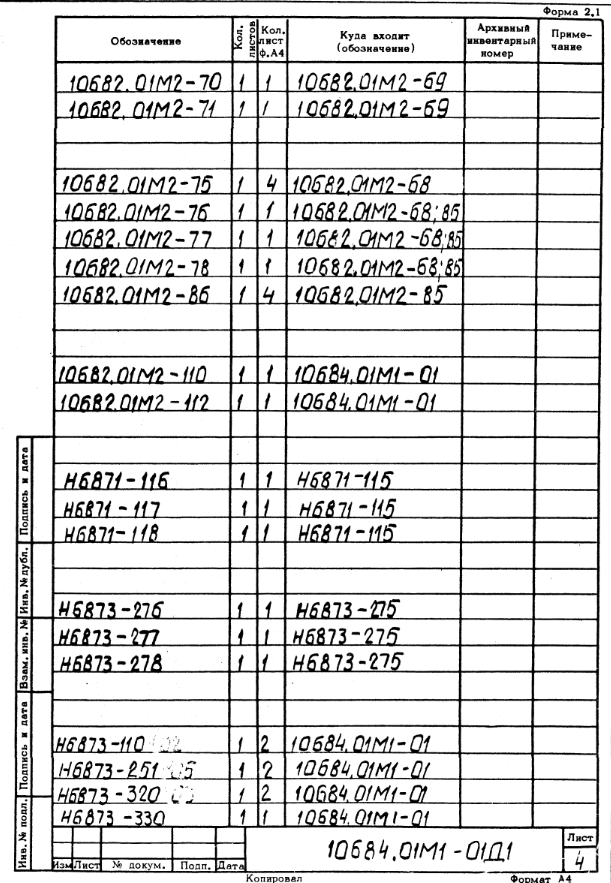 Форма 2.1
Обозначение Кол. листов Кол. лист ф.А4 Куда входит (обозначение) Архивный инвентарный номер Приме-чание
10682.01М2-70 1 1 10682.01М2-69
10682.01М2-71 1 1 10682.01М2-69
10682.01М2-75 1 4 10682.01М2-68
10682.01М2-76 1 1 10682.01М2-68;85
10682.01М2-77 1 1 10682.01М2-68;85
10682.01М2-78 1 1 10682.01М2-68;85
10682.01М2-86 1 4 10682.01М2-85
10682.01М2-110 1 1 10684.01М1-01
10682.01М2-112 1 1 10684.01М1-01
Н6871-116 1 1 Н6871-115
Н6871-117 1 1 Н6871-115
Н6871-118 1 1 Н6871-115
Н6873-276 1 1 Н6873-275
Н6873-277 1 1 Н6873-275
Н6873-278 1 1 Н6873-275
Н6873-110 1 2 10684.01М1-01
Н6873-251 1 2 10684.01М1-01
Н6873-320 1 2 10684.01М1-01
Н6873-330 1 1 10684.01М1-01
Инв. № подл. Подпись и дата Взам. инв. № Инв. № дубл. Подпись и дата
Изм Лист № докум. Подп. Дата
10684.01М1-01Д1
Лист
4
Копировал Формат А4